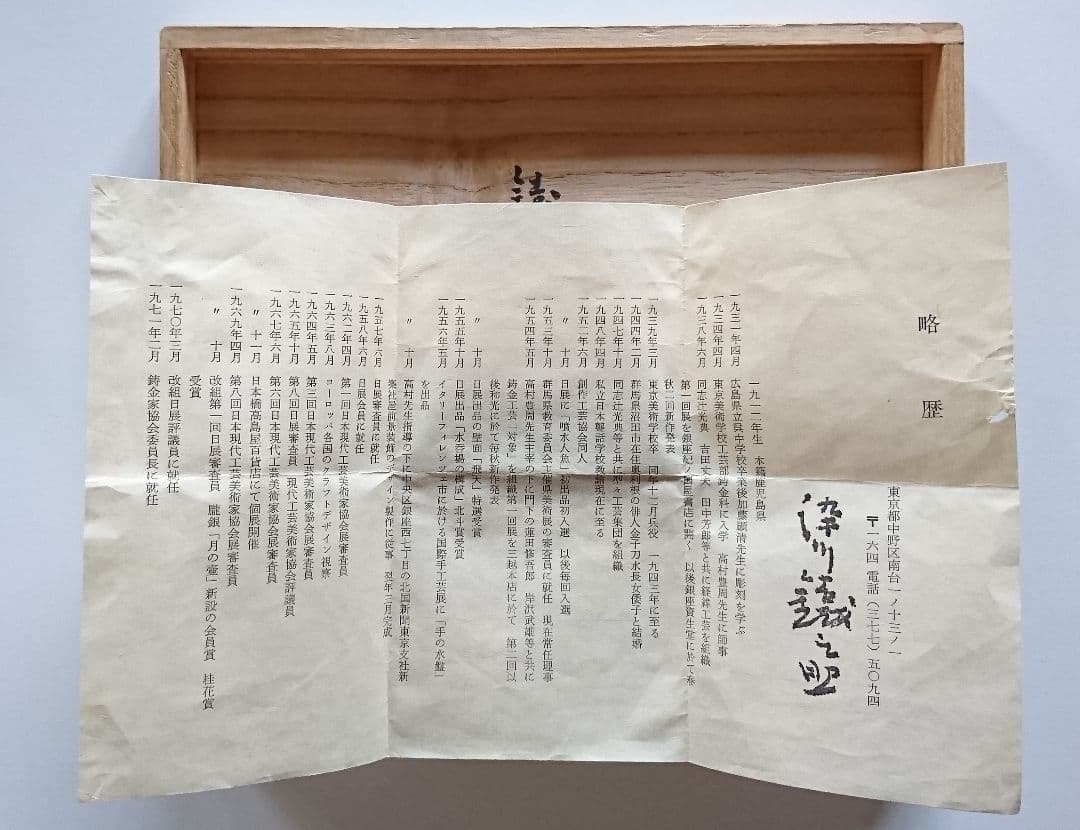 略歴
東京都中野区南台一ノ十三ノ一
〒一六四 電話(三七七)五〇九四
染川鐵之助
一九一二年生 本籍鹿児島県
一九三一年四月 広島県立呉中学校卒業後加藤顕清先生に彫刻を学ぶ
一九三四年四月 東京美術学校工芸部鋳金科に入学 高村豊周先生に師事
一九三八年六月 同志辻光典 吉田丈夫 田中芳郎等と共に経緯工芸を組織
第一回展を銀座紀ノ国屋書店に開く 以後銀座資生堂に於て春
秋二回新作発表
一九三九年三月 東京美術学校卒 同年十二月兵役 一九四三年に至る
一九四四年二月 群馬県沼田市在住奥利根の俳人金子刀水長女倭子と結婚
一九四七年十月 同志辻光典等と共に型々工芸集団を組織
一九四八年四月 私立日本聾話学校教諭現在に至る
一九五二年六月 創作工芸協会同人
〃 十月 日展に「噴水人魚」初出品初入選 以後毎回入選
一九五三年十月 群馬県教育委員会主催県美術展の審査員に就任 現在常任理事
一九五四年五月 高村豊周先生主宰の下に門下の蓮田修吾郎 岸沢武雄等と共に
鋳金工芸「対象」を組織第一回展を三越本店に於て 第二回以
後和光に於て毎秋新作発表
〃 十月 日展出品の壁面「飛天」特選受賞
一九五五年十月 日展出品「水呑場の構成」北斗賞受賞
一九五六年五月 イタリーフィレンツェ市に於ける国際手工芸展に「手の水盤」
を出品
〃 十月 高村先生指導の下に中央区銀座西七丁目の北国新聞東京支社新
築社屋前景装飾のデザイン製作に従事 翌年三月完成
一九五七年六月 日展審査員に就任
一九五八年六月 日展会員に就任
一九六二年四月 第一回日本現代工芸美術家協会展審査員
一九六三年八月 ヨーロッパ各国のクラフトデザイン視察
一九六四年五月 第三回日本現代工芸美術家協会展審査員
一九六五年十月 第八回日展審査員 現代工芸美術家協会評議員
一九六七年六月 第六回日本現代工芸美術家協会展審査員
〃 十一月 日本橋高島屋百貨店にて個展開催
一九六九年四月 第八回日本現代工芸美術家協会展審査員
〃 十月 改組第一回日展審査員 朧銀「月の壷」新設の会員賞 桂花賞
受賞
一九七〇年三月 改組日展評議員に就任
一九七一年二月 鋳金家協会委員長に就任